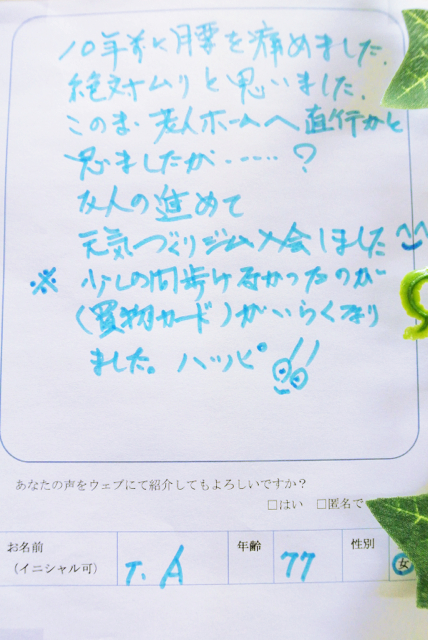 10年前に腰を痛めました。
絶対ムリと思いました。
このまま老人ホームへ直行かと
思ましたが……？
友人の進めで
元気づくりジム入会しました
※ 少しの間歩けなかったのが
(買物カード)がいらくなり
ました。ハッピー
あなたの声をウェブにて紹介してもよろしいですか？
□はい □匿名で
お名前
（イニシャル可）
T. A
年齢
77
性別
女